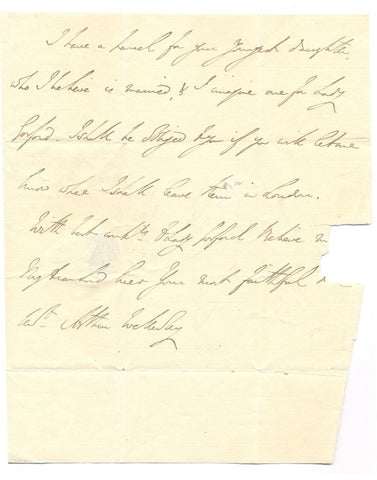 I have a parcel for your youngest daughter,
who I believe is married, & I imagine one for Lady
Gosford. I shall be obliged to you if you will let me
know where I shall leave them in London.
With best comp.ts to Lady Gosford Believe m
My dear Lord ever your most faithful
Ser.t Arthur Wellesley